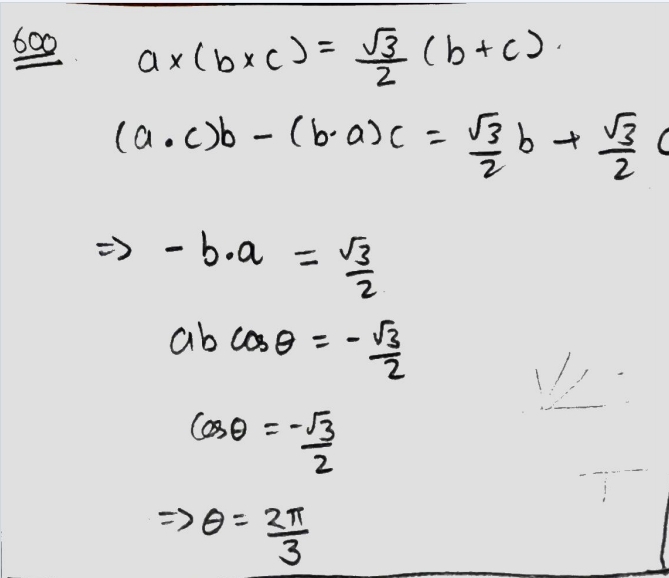 600 a×(b×c) = √3/2 (b+c).
(a.c)b - (b.a)c = √3/2 b + √3/2 c
=> - b.a = √3/2
ab cosθ = - √3/2
cosθ = -√3/2
=> θ = 2π/3